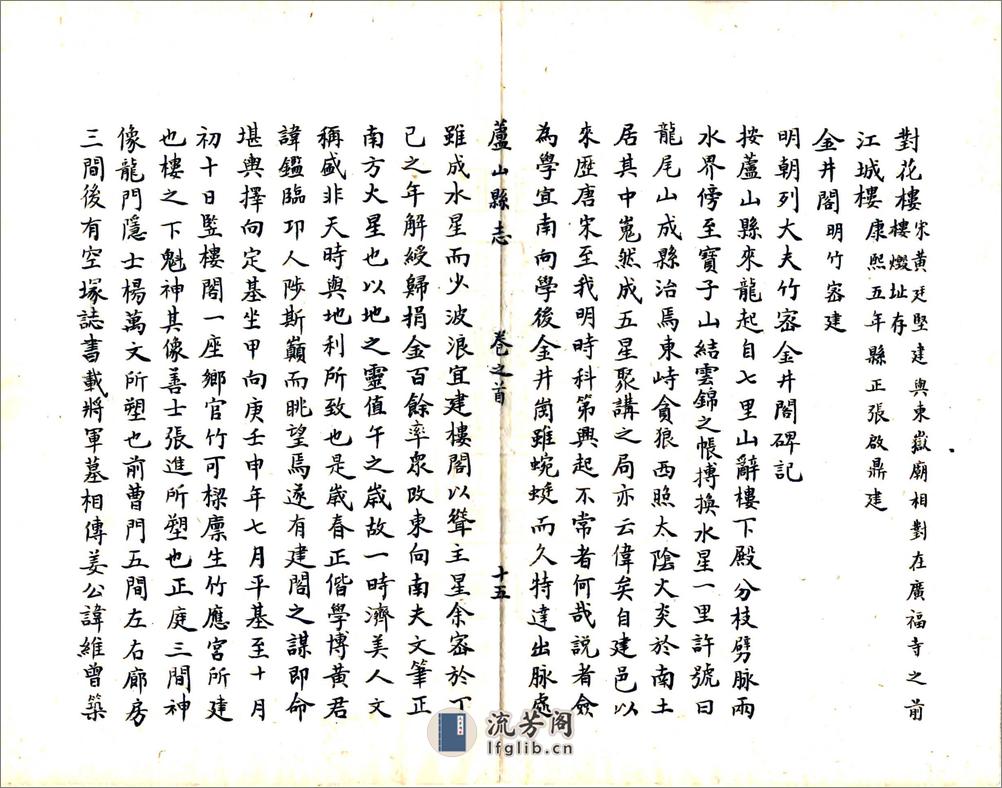 對花樓宋黃廷堅建與東嶽廟相對在廣福寺之前
樓燬址存
江城樓康熙五年縣正張啟鼎建
金井閣明竹密建
明朝列大夫竹密金井閣碑記
按蘆山縣來龍起自七里山辭樓下殿分枝劈脉兩
水界傍至寶子山結雲錦之帳搏換水星一里許號曰
龍尾山成縣治焉東峙貪狼西照太陰火炎於南土
居其中嵬然成五星聚講之局亦云偉矣自建邑以
來歷唐宋至我明時科第興起不常者何哉説者僉
為學宜南向學後金井崗雖蜿蜓而久特達出脉處
蘆山縣志 卷之首 十五
雖成水星而少波浪宜建樓閣以聳主星余密於丁
已之年解綬歸捐金百餘率衆改東向南夫文筆正
南方火星也以地之靈值午之歲故一時濟美人文
稱盛非天時與地利所致也是歲春正偕學博黃君
諱鑑臨邛人陟斯巔而眺望焉遂有建閣之謀即命
堪輿擇向定基坐甲向庚壬申年七月平基至十月
初十日竪樓閣一座鄉官竹可樑廩生竹應宮所建
也樓之下魁神其像善士張進所塑也正庭三間神
像龍門隱士楊萬文所塑也前曹門五間左右廊房
三間後有空塚誌書載將軍墓相傳姜公諱維曾築
流芳阁
lfglib.cn